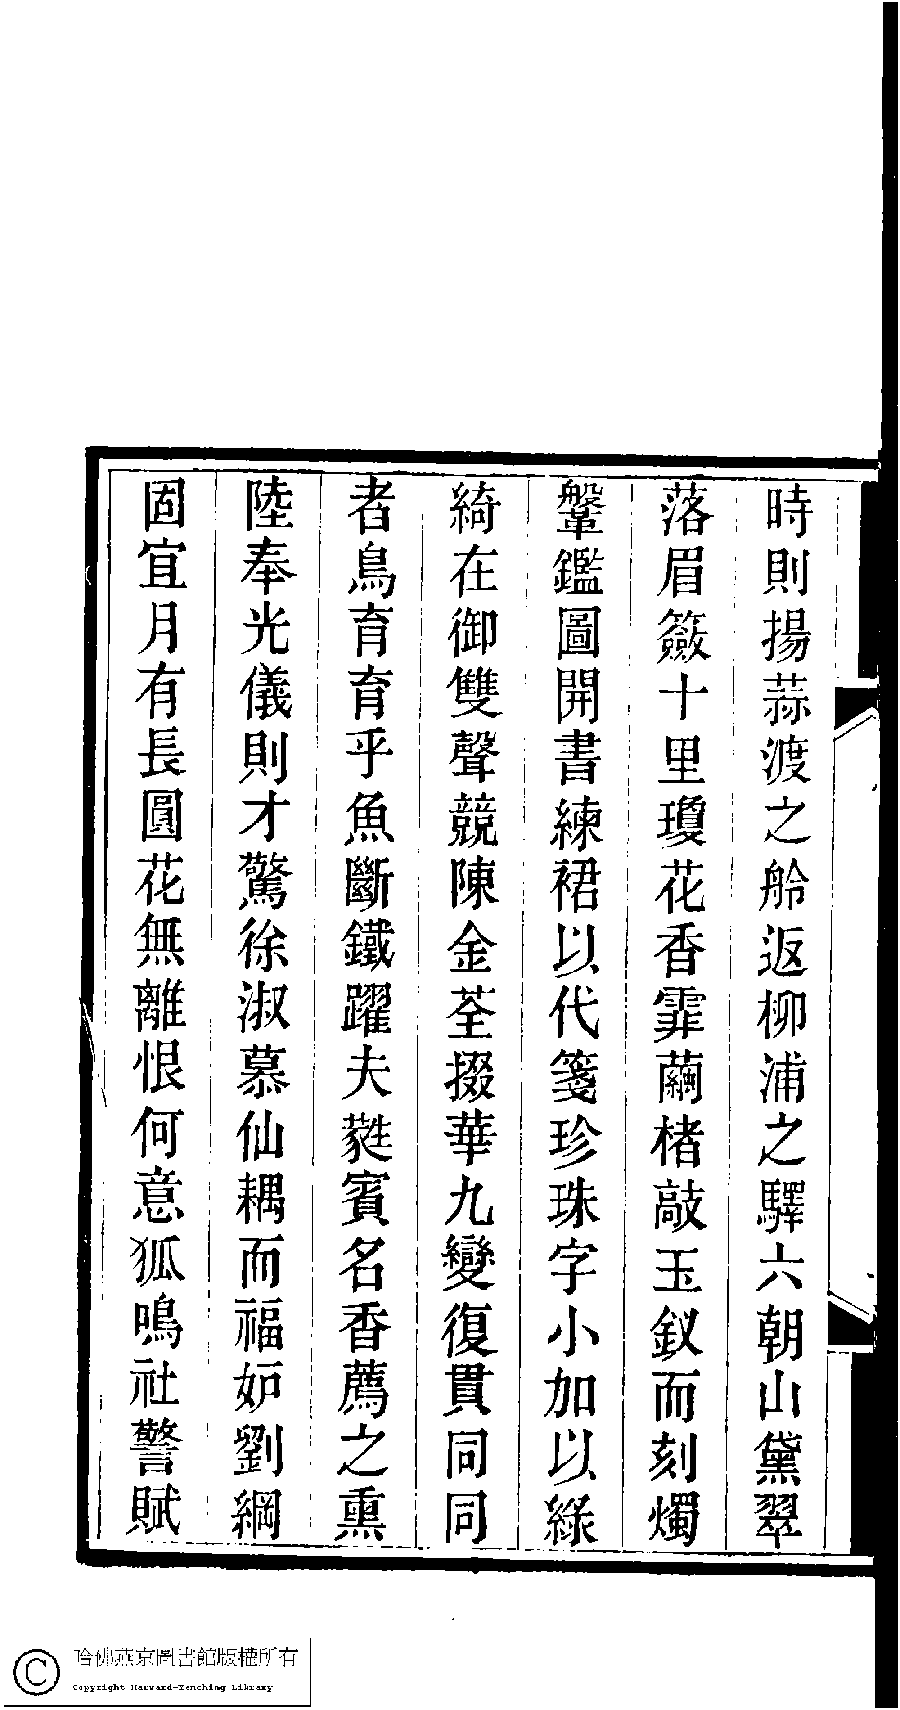 時則揚蒜渡之舲返柳浦之驛六朝山黛翠
落眉簽十里瓊花香霏繭楮敲玉釵而刻燭
鞶鑑圖開書練裙以代箋珍珠字小加以綠
綺在御雙聲競陳金荃掇華九變復貫同同
者鳥育育乎魚斷鐵躍夫蕤賓名香薦之熏
陸奉光儀則才驚徐淑慕仙耦而福妒劉綱
固宜月有長圓花無離恨何意狐鳴社警賦
哈佛燕京圖書館版權所有
Copyright Harvard-Yenching Library